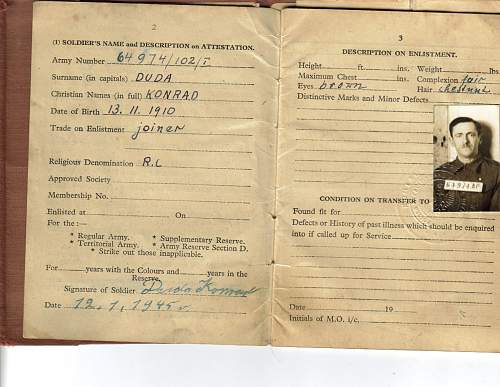 2
(1) SOLDIER'S NAME and DESCRIPTION on ATTESTATION.
Army Number 64974/102/I
Surname (in capitals) DUDA
Christian Names (in full) KONRAD
Date of Birth 13. 11. 1910
Trade on Enlistment joiner
Religious Denomination R.C
Approved Society
Membership No.
Enlisted at On
For the :—
* Regular Army. * Supplementary Reserve.
* Territorial Army. * Army Reserve Section D.
* Strike out those inapplicable.
For years with the Colours and years in the
Reserve.
Signature of Soldier Duda Konrad
Date 12. 1. 1945
3
DESCRIPTION ON ENLISTMENT.
Height ft. ins. Weight lbs
Maximum Chest ins. Complexion fair
Eyes brown Hair chestnut
Distinctive Marks and Minor Defects
CONDITION ON TRANSFER TO
Found fit for
Defects or History of past illness which should be enquired
into if called up for Service
Date 19
Initials of M.O. i/c.